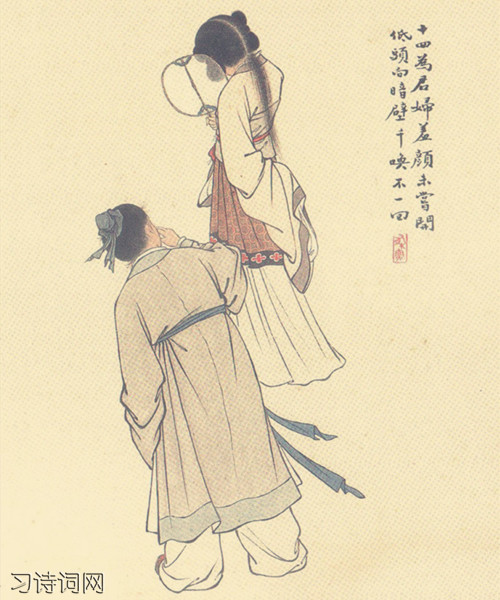 十四為君婦羞顏未嘗開
低頭向暗壁千喚不一回
习诗词网